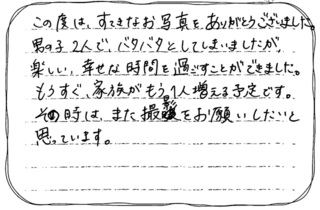 この度は、すてきなお写真を、ありがとうございました。
男の子2人で、バタバタとしてしまいましたが、
楽しい、幸せな時間を過ごすことができました。
もうすぐ、家族がもう1人増える予定です。
その時は、また撮影をお願いしたいと
思っています。